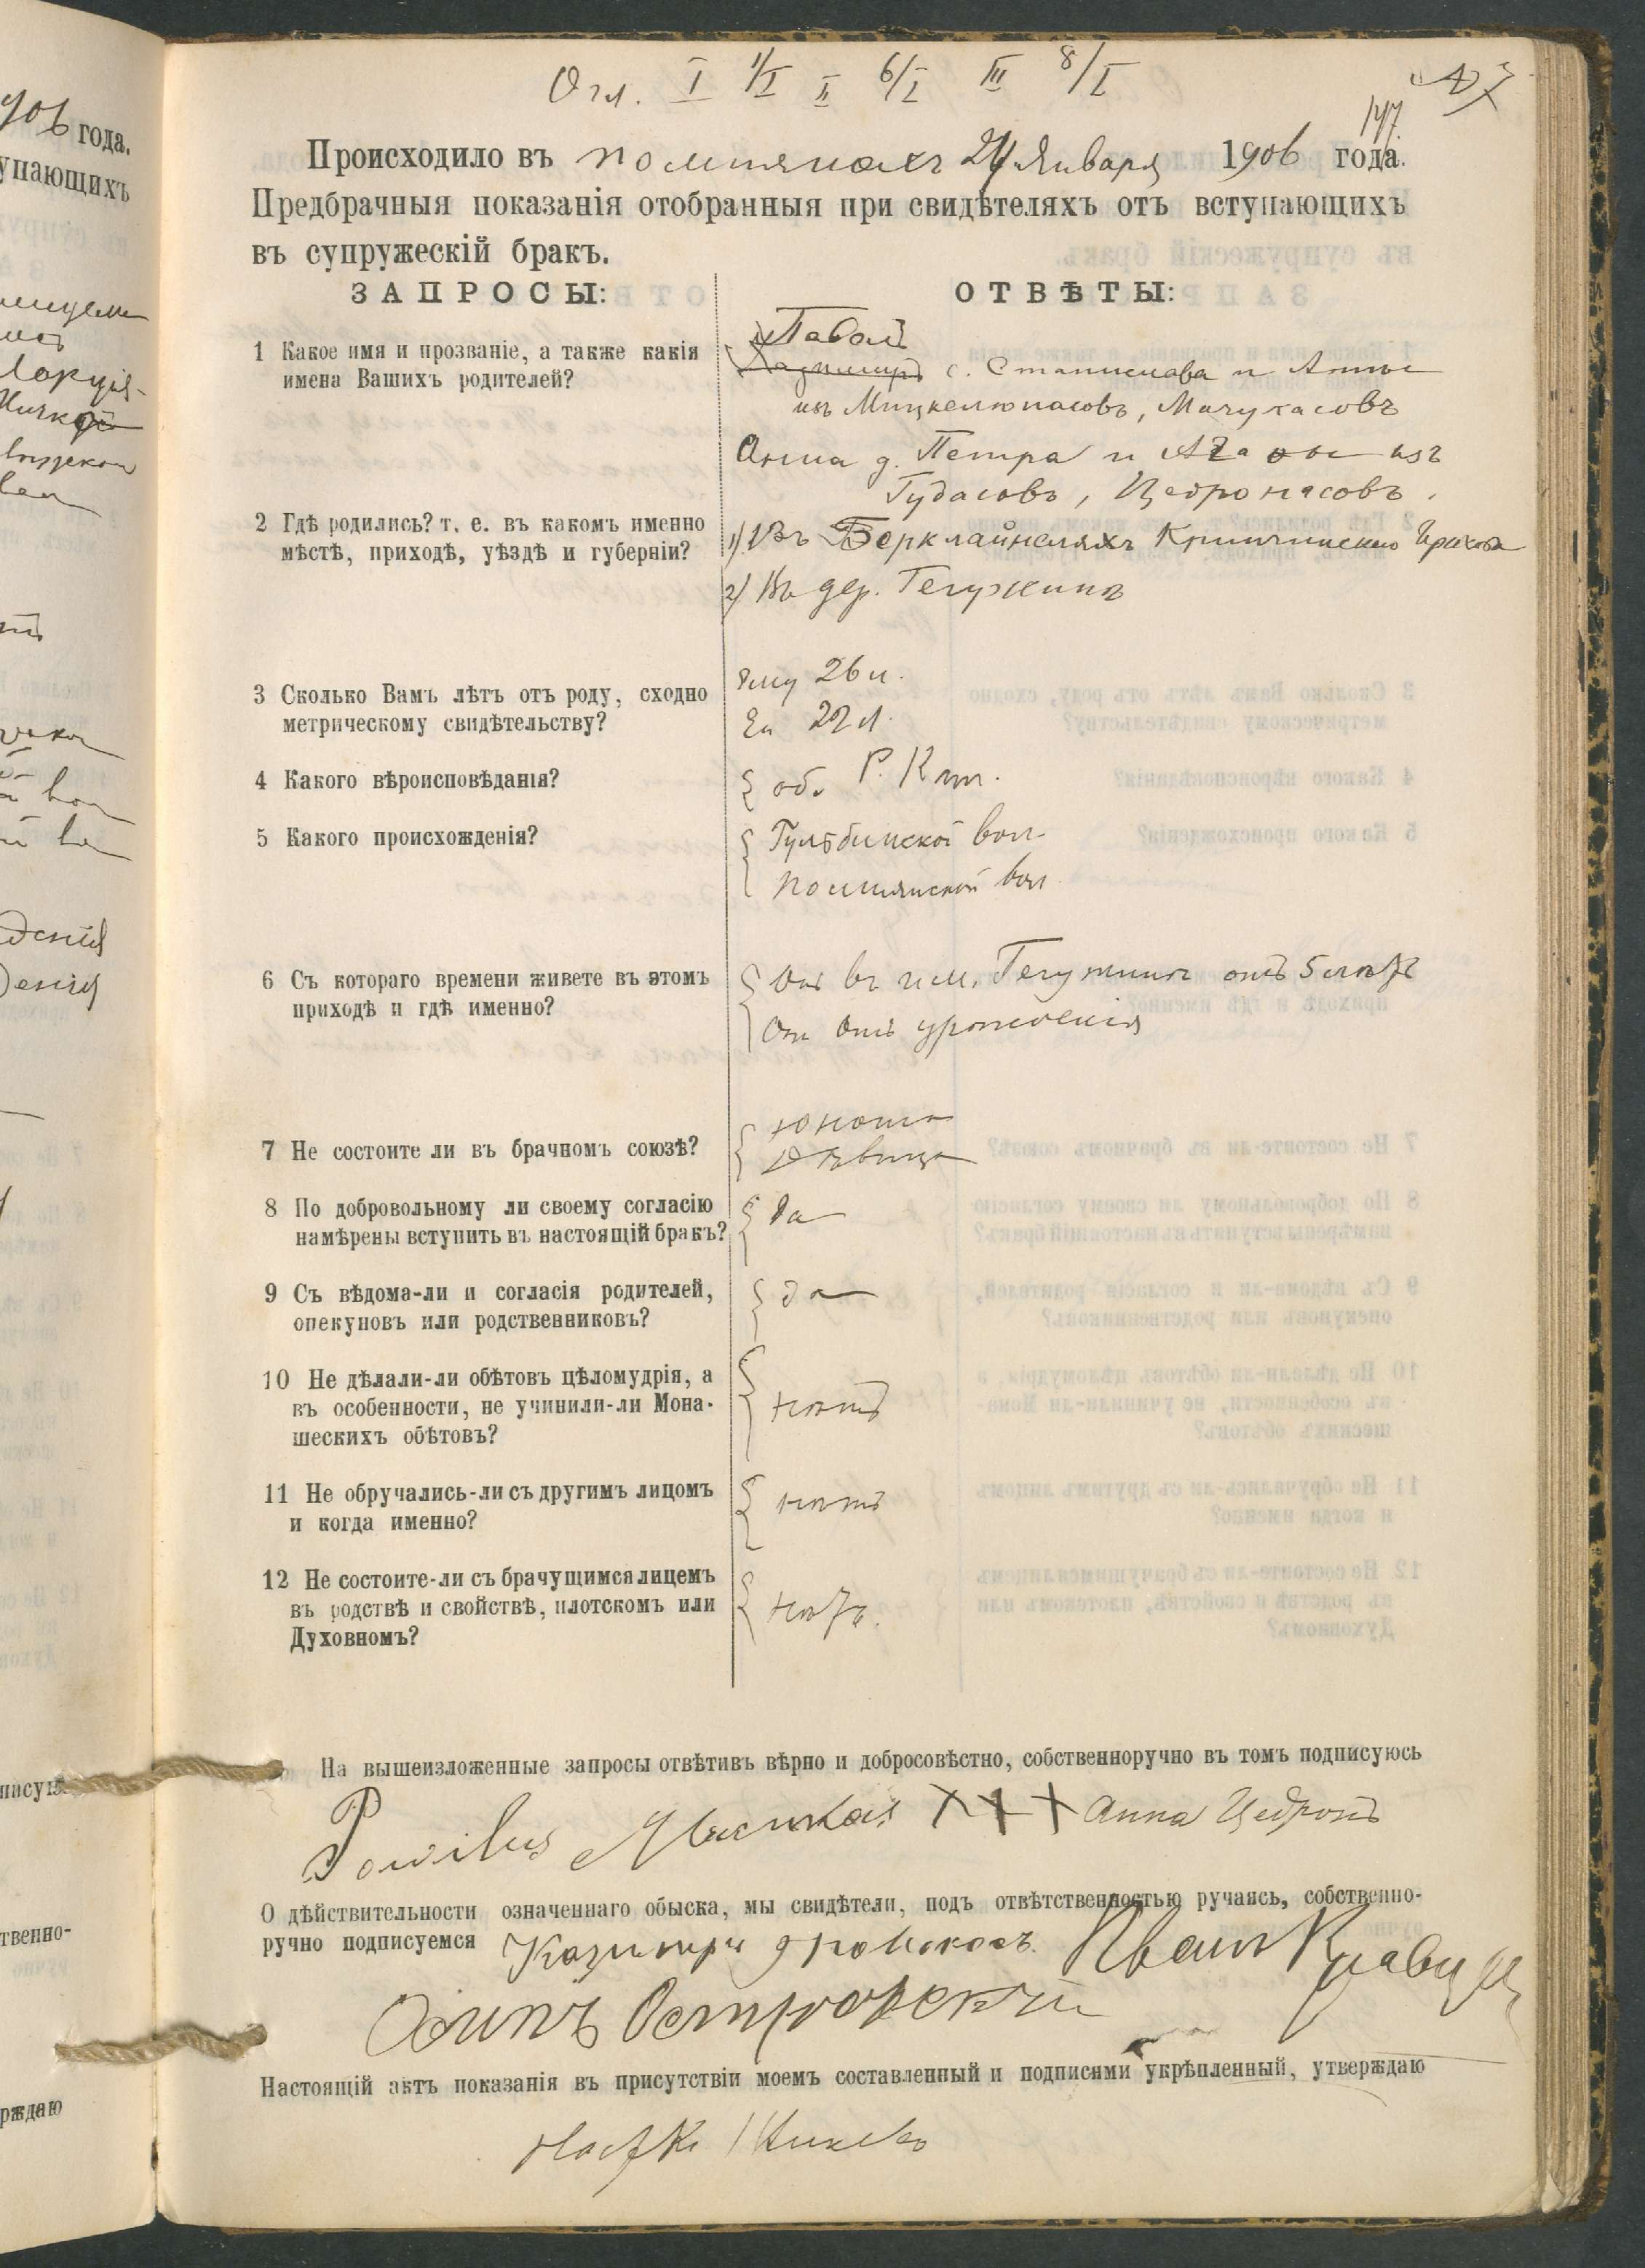 Огл. I 1/I II 6/I III 8/I
47
147.
Происходило въ Помпянахъ 24 Января 1906 года.
Предбрачныя показанія отобранныя при свидѣтеляхъ отъ вступающихъ
въ супружескій бракъ.
ЗАПРОСЫ:
ОТВѢТЫ:
1 Какое имя и прозваніе, а также какія
имена Вашихъ родителей?
Павелъ
с. Станислава и Анны
изъ Мицкелюнасовъ, Мачукасовъ
Анна д. Петра и Агаты изъ
Гудасовъ, Цедронасовъ.
2 Гдѣ родились? т. е. въ какомъ именно
мѣстѣ, приходѣ, уѣздѣ и губерніи?
1) Въ Беркляйняляхъ Прихода
2) Въ дер. Гегужинѣ
3 Сколько Вамъ лѣтъ отъ роду, сходно
метрическому свидѣтельству?
Ему 26 л.
Ей 22 л.
4 Какого вѣроисповѣданія?
об. Р. Кат.
5 Какого происхожденія?
Гульбинской вол.
Помпянской вол.
6 Съ котораго времени живете въ этомъ
приходѣ и гдѣ именно?
Онъ въ им. Гегужинѣ отъ 5 лѣтъ
Она отъ урожденія
7 Не состоите ли въ брачномъ союзѣ?
Юноша
Дѣвица
8 По добровольному ли своему согласію
намѣрены вступить въ настоящій бракъ?
да
9 Съ вѣдома-ли и согласія родителей,
опекуновъ или родственниковъ?
да
10 Не дѣлали-ли обѣтовъ цѣломудрія, а
въ особенности, не учинили-ли Мона-
шескихъ обѣтовъ?
нѣтъ
11 Не обручались-ли съ другимъ лицомъ
и когда именно?
нѣтъ
12 Не состоите-ли съ брачущимся лицемъ
въ родствѣ и свойствѣ, плотскомъ или
Духовномъ?
нѣтъ.
На вышеизложенные запросы отвѣтивъ вѣрно и добросовѣстно, собственноручно въ томъ подписуюсь
Powilus XXX Анна Цедронъ
О дѣйствительности означеннаго обыска, мы свидѣтели, подъ отвѣтственностью ручаясь, собственно-
ручно подписуемся Казимиръ Иванъ
Осипъ Островскій
Настоящій актъ показанія въ присутствіи моемъ составленный и подписями укрѣпленный, утверждаю